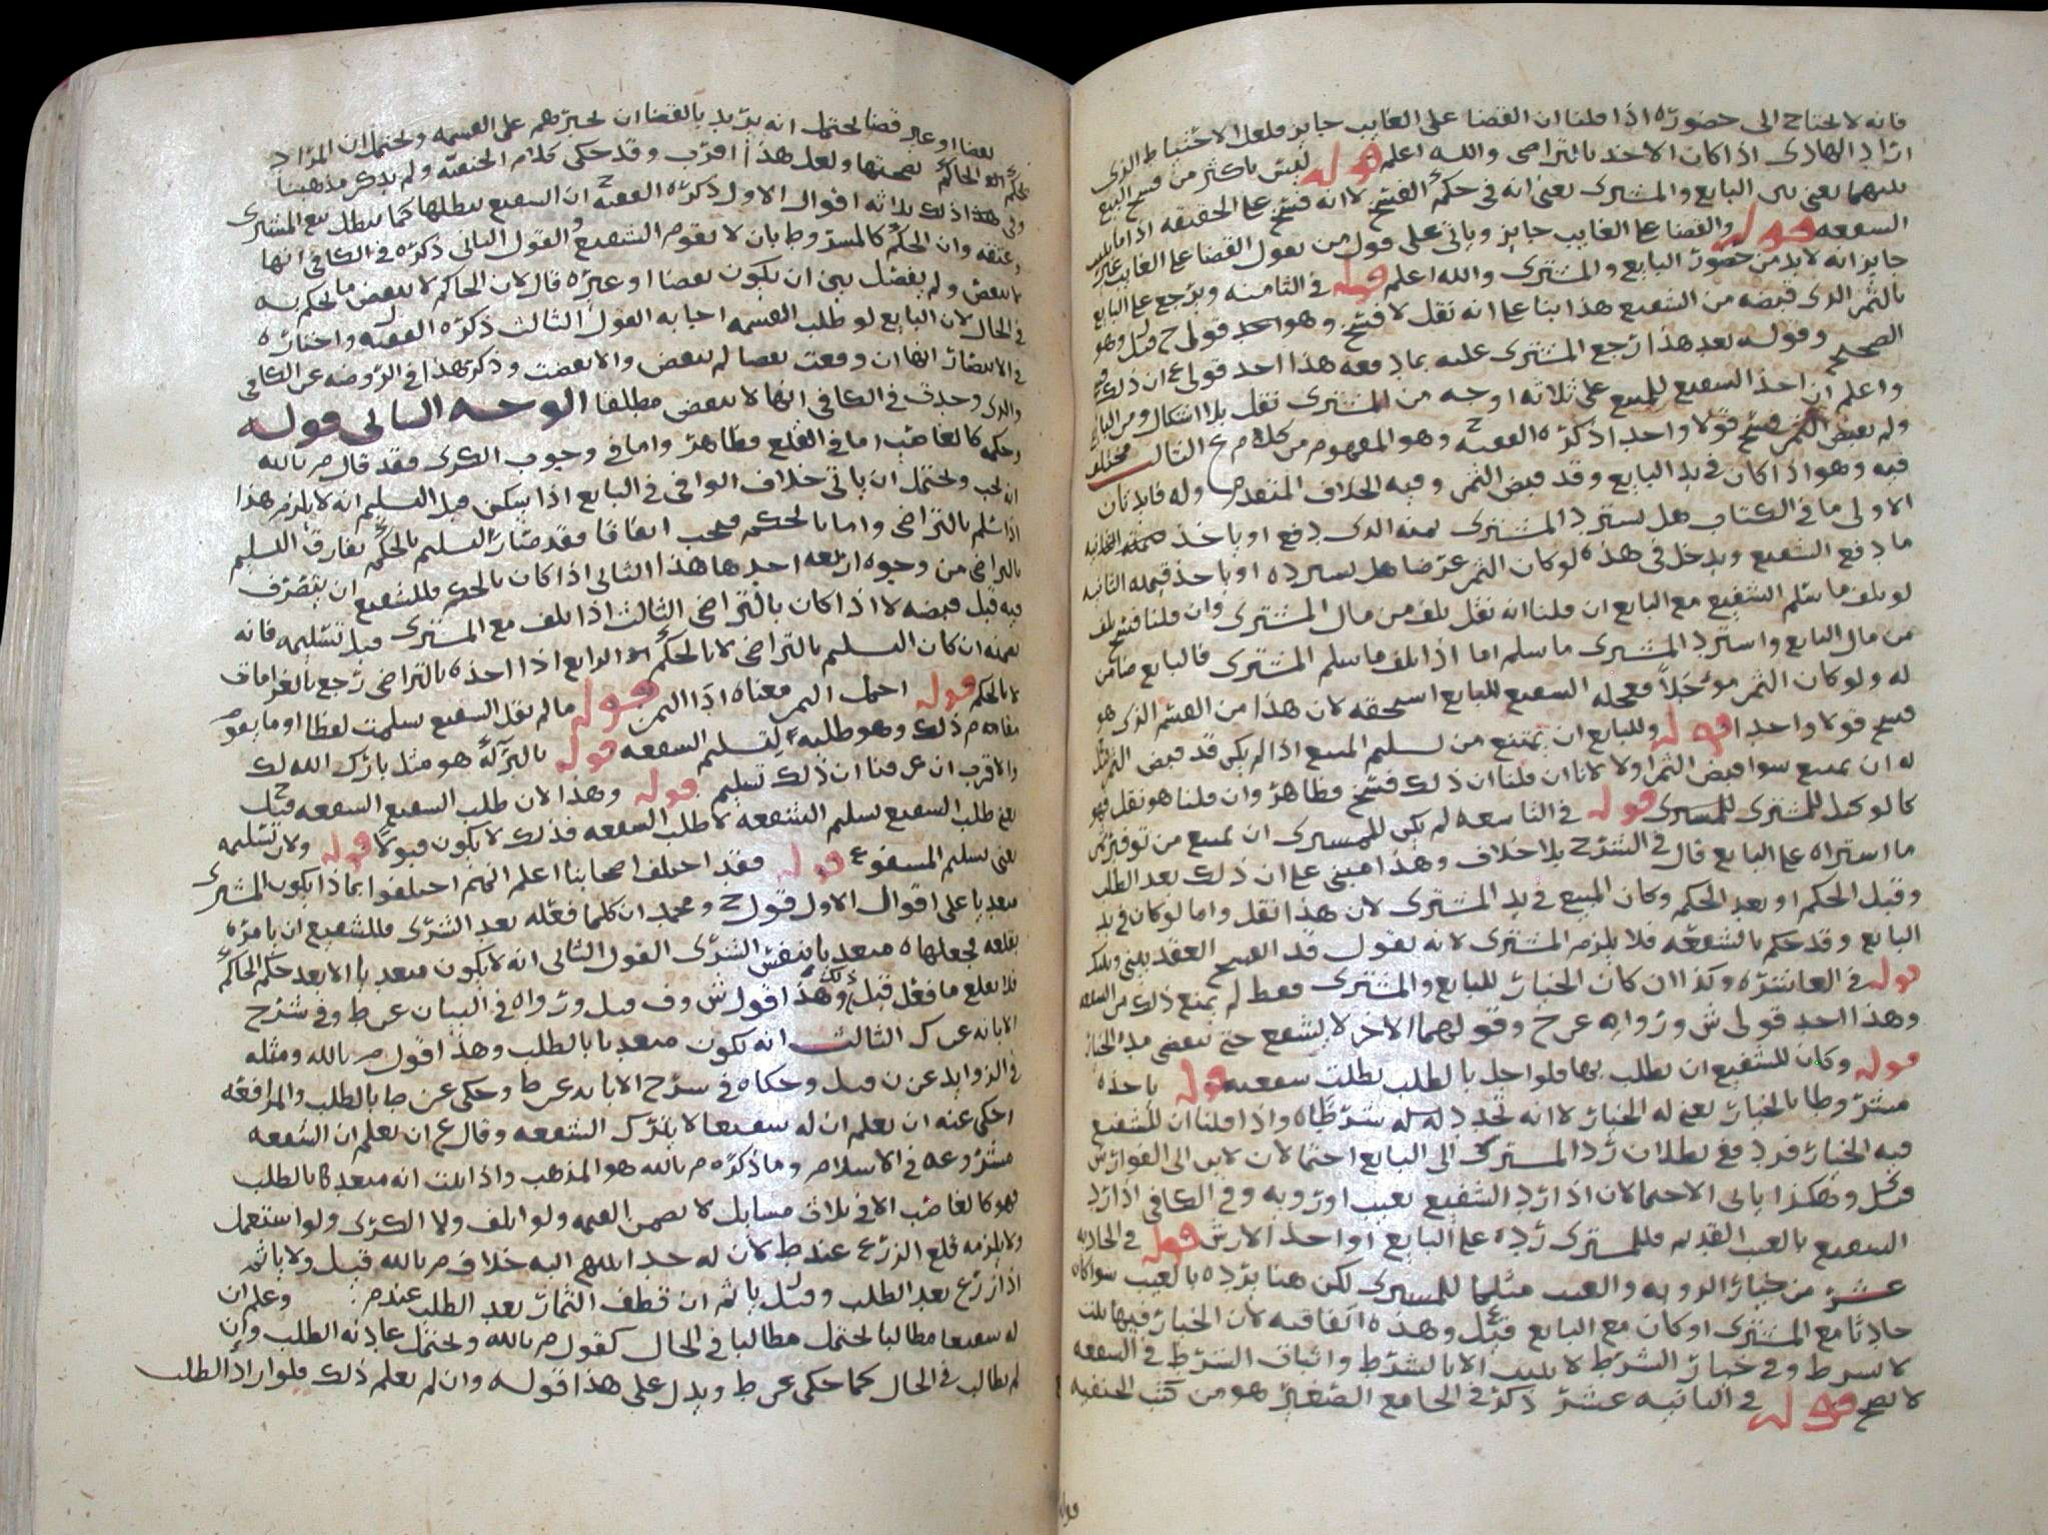 فانه لا يحتاج الى حضوره اذا قلنا ان القضا على الغايب جايز فلعل الاحتياط الذي
اراد الهادى اذا كان الاخذ بالتراضى والله اعلم قوله ليس باكثر من فسخ البيع
بينهما يعنى بين البايع والمشترى يعنى انه فى حكم الفسخ لا انه فسخ على الحقيقه اذا
الشفعه قوله والقضا على الغايب جايز وياتى على قول من يقول القضا على الغايب غير
جايز انه لا بد من حضور البايع والمشترى والله اعلم قوله فى الثامنه ويرجع على البايع
بالثمن الذى قبضه من الشفيع هذا بنا على انه نقل لا فسخ وهو احد قولى ح قيل وهو
الصحيح وقوله بعد هذا رجع المشترى عليه بما دفعه هذا احد قولى ع ان ذلك
واعلم ان اخذ الشفيع للمبيع على ثلاثه اوجه من المشترى نقل بلا اشكال ومن البايع
ولم يقبض الثمن فسخ قولا واحدا ذكره الفقيه ح وهو المفهوم من كلام م ع الثالث مختلف
فيه وهو اذا كان فى يد البايع وقد قبض الثمن وفيه الخلاف المتقدم وله فايدتان
الاولى ما فى الكتاب هل يسترد المشترى ثمنه الذى دفع او ياخذ
ما دفع الشفيع ويدخل فى هذه لو كان الثمن عرضا هل يسترده او ياخذ قيمته الثانيه
لو تلف ما سلم الشفيع مع البايع ان قلنا انه نقل تلف من مال المشترى وان قلنا فسخ تلف
من مال البايع واسترد المشترى ما سلم اما اذا تلف ما سلم المشترى فالبايع ضامن
له ولو كان الثمن مؤجلا فعجله الشفيع للبايع استحقه لان هذا من القسم الذى هو
فسخ قولا واحدا قوله وللبايع ان يمتنع من تسليم المبيع اذا لم يكن قد قبض الثمن
له ان يمنع سوا قبض الثمن اولا لانا ان قلنا ان ذلك فسخ فظاهر وان قلنا هو نقل فهو
كما لو المشترى للمشترى قوله فى التاسعه لم يكن للمشترى ان يمنع من توفير ثمن
ما اشتراه على البايع قال فى الشرح بلا خلاف وهذا مبنى على ان ذلك بعد الطلب
وقبل الحكم او بعد الحكم وكان المبيع فى يد المشترى لان هذا نقل واما لو كان فى يد
البايع وقد حكم بالشفعه فلا يلزم المشترى لانه يقول قد انفسخ العقد بينى وبينك
قوله فى العاشره وكذا ان كان الخيار للبايع والمشترى فقط لم يمنع ذلك من
وهذا احد قولى ش ورواه عن خ وقولهما الاخر لا يشفع حتى تنقضى مده الخيار
قوله وكان للشفيع ان يطلب بها فلو اخل بالطلب بطلت شفعته قوله ياخذه
مشروطا بالخيار يعنى له الخيار لا انه تجدد له شرطاه واذا قلنا ان للشفيع
فيه الخيار فرد فع بطلان رد المشترى الى البايع احتمالان لابى الفوارس
قيل وهكذا ياتى الاحتمالان اذا رد الشفيع بعيب او رويه وفى الكافى اذا رد
الشفيع بالعيب القديم فللمشترى رده على البايع او اخذ الارش قوله فى الحاديه
عشر من خيار الرويه والعيب مثلما للمشترى لكن هنا يرده بالعيب سوا كان
حادثا مع المشترى او كان مع البايع قيل ع وهذه اتفاقيه لان الخيار فيها يثبت
لا بشرط وفى خيار الشرط لا يثبت الا بالشرط واثبات الشرط فى الشفعه
لا يصح قوله فى الثانيه عشر ذكر فى الجامع الصغير هو من كتب الحنفيه
بعضا او غير قضا يحتمل انه يريد بالقضا ان يجبرهم على القسمه ويحتمل ان المراد
حكم الحاكم بصحتها ولعل هذا اقرب وقد حكى كلام الحنفيه ولم يذكر مذهبنا
وفى هذا ذلك ثلاثه اقوال الاول ذكره الفقيه ح ان الشفيع يبطلها كما يبطل بيع المشترى
وعتقه وان الحكم كالمشروط بان لا يقوم الشفيع والقول الثانى ذكره فى الكافى انها
لا تنقض ولم يفصل بين ان يكون بقضا او غيره قال لان الحاكم لا ينقض ما يحكم به
فى الحال لان البايع لو طلب القسمه اجابه القول الثالث ذكره الفقيه ل واختاره
فى الانتصار انها ان وقعت بقضا لم تنقض والا نقضت وذكر هذا فى الروضه عن الكافى
والذى وجدت فى الكافى انها لا تنقض مطلقا الوجه الثانى قوله
وحكمه كالغاصب اما فى القلع فظاهر واما فى وجوب الكرى فقد قال م بالله
انه يجب ويحتمل ان ياتى خلاف الوافى فى البايع اذا سكن قبل التسليم انه لا يلزم هذا
اذا سلم بالتراضى واما بالحكم فيجب اتفاقا فقد صار التسليم بالحكم يفارق التسليم
بالتراضى من وجوه اربعه احدها هذا الثانى اذا كان بالحكم فللشفيع ان يتصرف
فيه قبل قبضه لا اذا كان بالتراضى الثالث اذا تلف مع المشترى قبل تسليمه فانه
يضمنه ان كان التسليم بالتراضى لا بالحكم الرابع اذا اخذه بالتراضى رجع بالغرامات
لا بالحكم قوله اجل الثمن معناه اذا الثمن قوله ما لم يقل الشفيع سلمت لفظا او ما يقوم
مقامه م ذلك وهو طلبه لتسليم الشفعه قوله بالتركة هو مثل بارك الله لك
والاقرب ان عرفنا ان ذلك تسليم قوله وهذا لان طلب الشفيع الشفعه قيل ح
يعنى طلب الشفيع تسليم الشفعه لا طلب الشفعه فذلك لا يكون قبولا قوله ولان تسليمه
يعنى تسليم المشفوع قوله فقد اختلف اصحابنا اعلم انهم اختلفوا بماذا يكون المشترى
متعديا على اقوال الاول قول ح ومحمد ان كلما فعله بعد الشرى فللشفيع ان يامره
بقلعه فجعلاه متعديا بنفس الشرى القول الثانى انه لا يكون متعديا الا بعد حكم الحاكم
فلا يقلع ما فعل قبل ذلك وهذا قول ش وف قيل ورواه فى البيان عن ط وفى شرح
الابانه عن ك الثالث انه يكون متعديا بالطلب وهذا قول م بالله ومثله
فى الزوايد عن ن قيل وحكاه فى شرح الابانه عن ط وحكى عن صا بالطلب والمرافعه
احكى عنه ان يعلم ان له شفيعا لا يترك الشفعه وقال ع ان يعلم ان الشفعه
مشروعه فى الاسلام وما ذكره م بالله هو المذهب واذا ثبت انه متعد كا بالطلب
فهو كالغاصب الا فى ثلاث مسايل لا يضمن القيمه ولو تلف ولا الكرى ولو استعمل
ولا يلزمه قلع الزرع عند ط لان له حدا ينتهى اليه خلاف م بالله قيل ولا ياثم
اذا زرع بعد الطلب وقيل ل ياثم ان قطف الثمار بعد الطلب عند م وعلم ان
له شفيعا مطالبا يحتمل مطالبا فى الحال كقول م بالله ويحتمل عادته الطلب وان
لم يطالب فى الحال كما حكى عن ط ويدل على هذا قوله وان لم يعلم ذلك فلو اراد الطلب